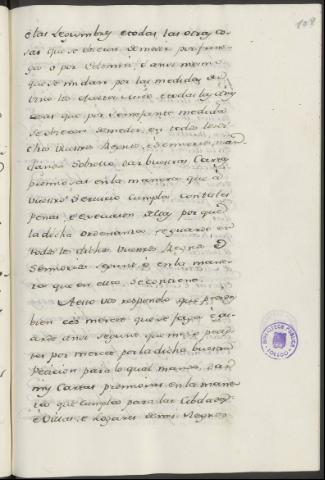 108
elas Legumbres e todas las otras co-
sas que se obieren de medir por fane-
ga o por celemin, e ansi mesmo
que se midan por las medidas de
vino lo e todas las
cosas que por semejante medida
se obieren de medir en todos los
dichos vuestros Regnos, e Señorios, man-
dando sobre ello dar buestras Cartas
premiosas en la manera que a
vuestro servicio cumpla, con tales
penas, e execucion dellas por que
la dicha ordenanza se guarde en
todos los dichos vuestros Regnos e
Señorios segunt e en la mane-
ra que en ella se contiene.
A esto vos respondo que
bien es mi merced que se faga, e gu-
arde ansi segunt que me lo pedis-
tes por merced por la dicha buestra
Peticion para lo qual mando dar
mis Cartas premiosas en la mane-
ra que cumpla para las Cibdades,
e Villas, e Logares de mis Regnos
BIBLIOTECA PUBLICA
TOLEDO